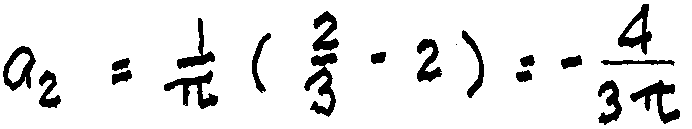 a₂ = 1/π ( 2/3 - 2 ) = - 4/3π